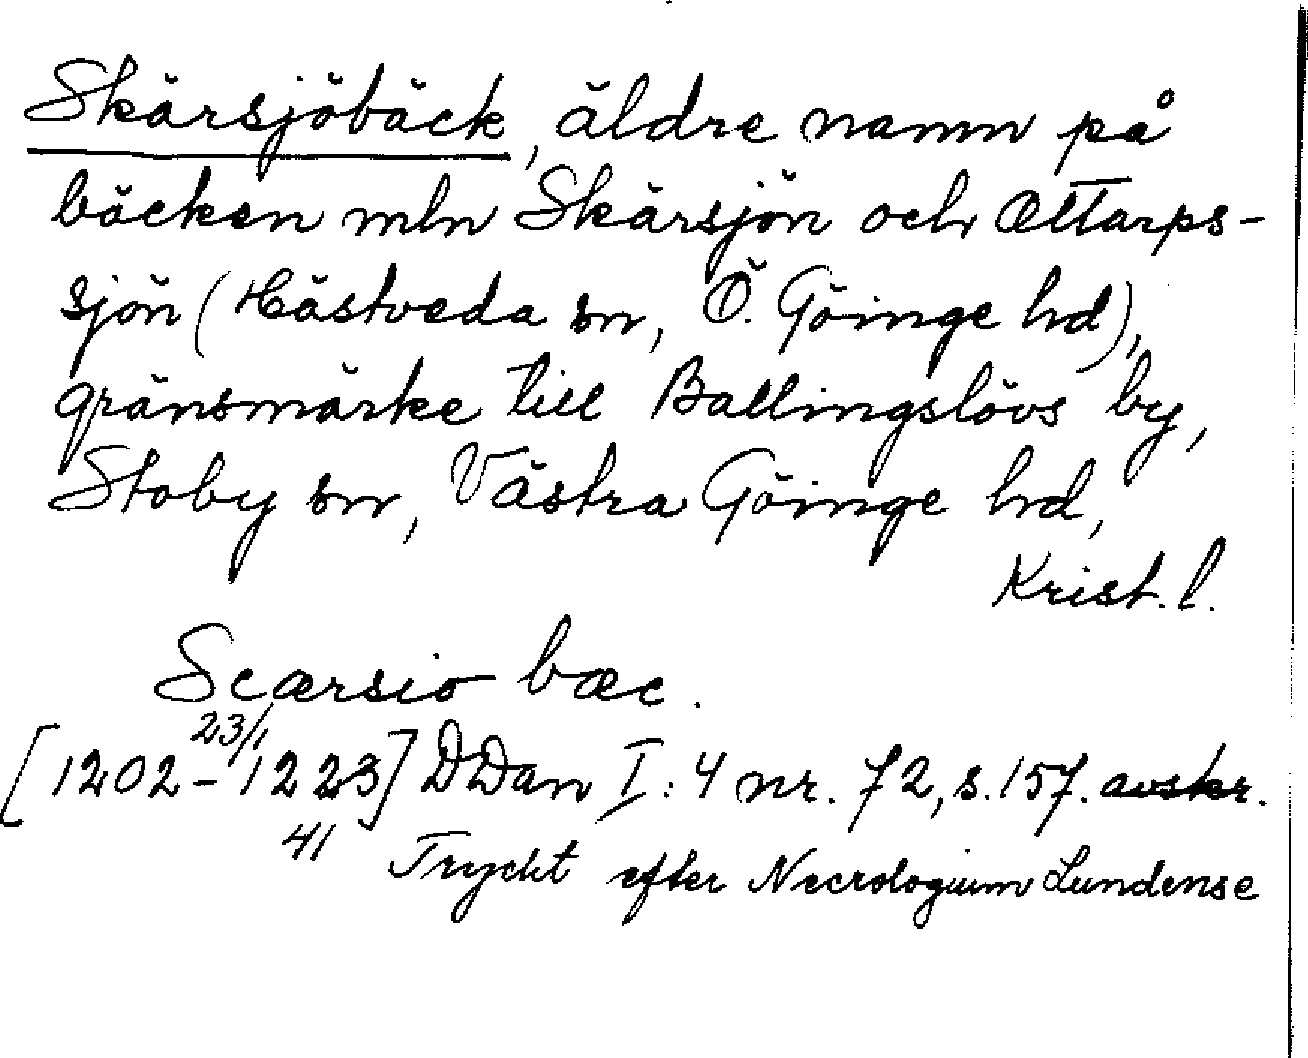 Skärsjöbäck, äldre namn på
bäcken mln Skärsjön och Ottarps-
sjön (Hästveda sn, Ö. Göinge hd),
gränsmärke till Ballingslövs by,
Stoby sn, Västra Göinge hd,
Krist. l.
Scærsio bæc.
23/1
[1202-1223] DDan I:4 nr. 72, s. 157. avskr.
41 Tryckt efter Necrologium Lundense